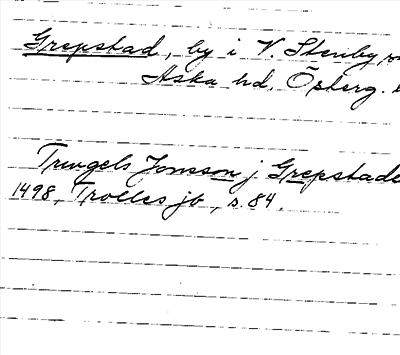 Grepstad, by i V. Stenby
Aska hd, Österg.
Trugels Jonsson j Grepstade
1498, Trolles jb, s. 84.